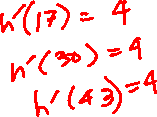 h'(17) = 4
h'(30) = 4
h'(43) = 4